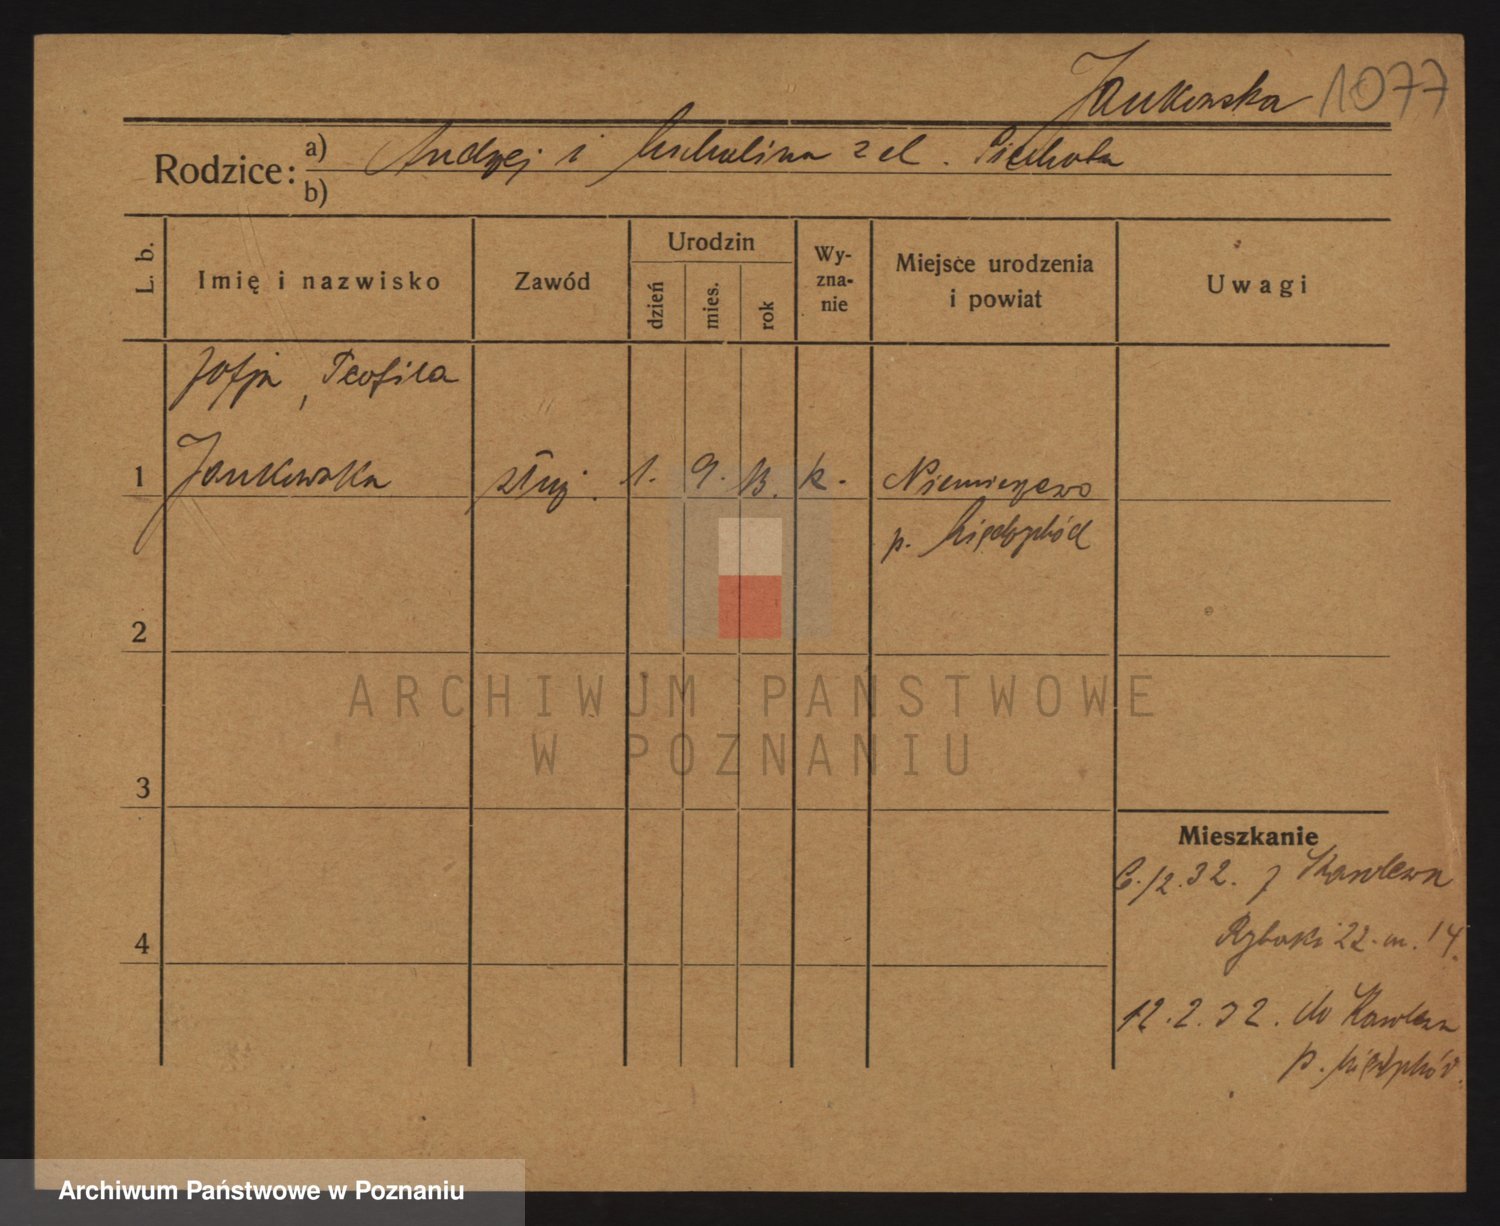 Jankowska 1077
Rodzice: a) Andrzej i Michalina z d. Piechota
b)
L. b.
Imię i nazwisko
Zawód
Urodzin
dzień
mies.
rok
Wy-
zna-
nie
Miejsce urodzenia
i powiat
Uwagi
Zofja, Teofila
1 Jankowska służ. 1. 9. 13. k. Niemierzewo
p. Międzychód
2
3
4
Mieszkanie
6.12.32. z
Rybaki 22 m. 14.
12.2.32. do
p. Międzychód.
ARCHIWUM PAŃSTWOWE
W POZNANIU
Archiwum Państwowe w Poznaniu